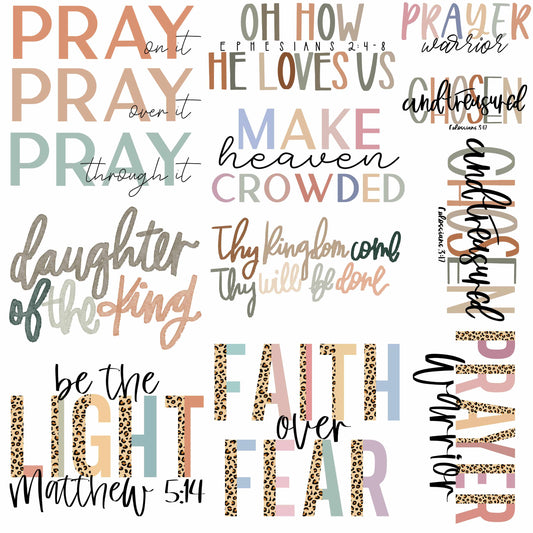 PRAY on it
PRAY over it
PRAY through it
OH HOW
EPHESIANS 2:4-8
HE LOVES US
PRAYER
warrior
CHOSEN
and treasured
Colossians 3:17
MAKE
heaven
CROWDED
daughter
of the King
Thy Kingdom come
Thy will be done
CHOSEN
and treasured
Colossians 3:17
be the
LIGHT
Matthew 5:14
FAITH
over
FEAR
PRAYER
Warrior